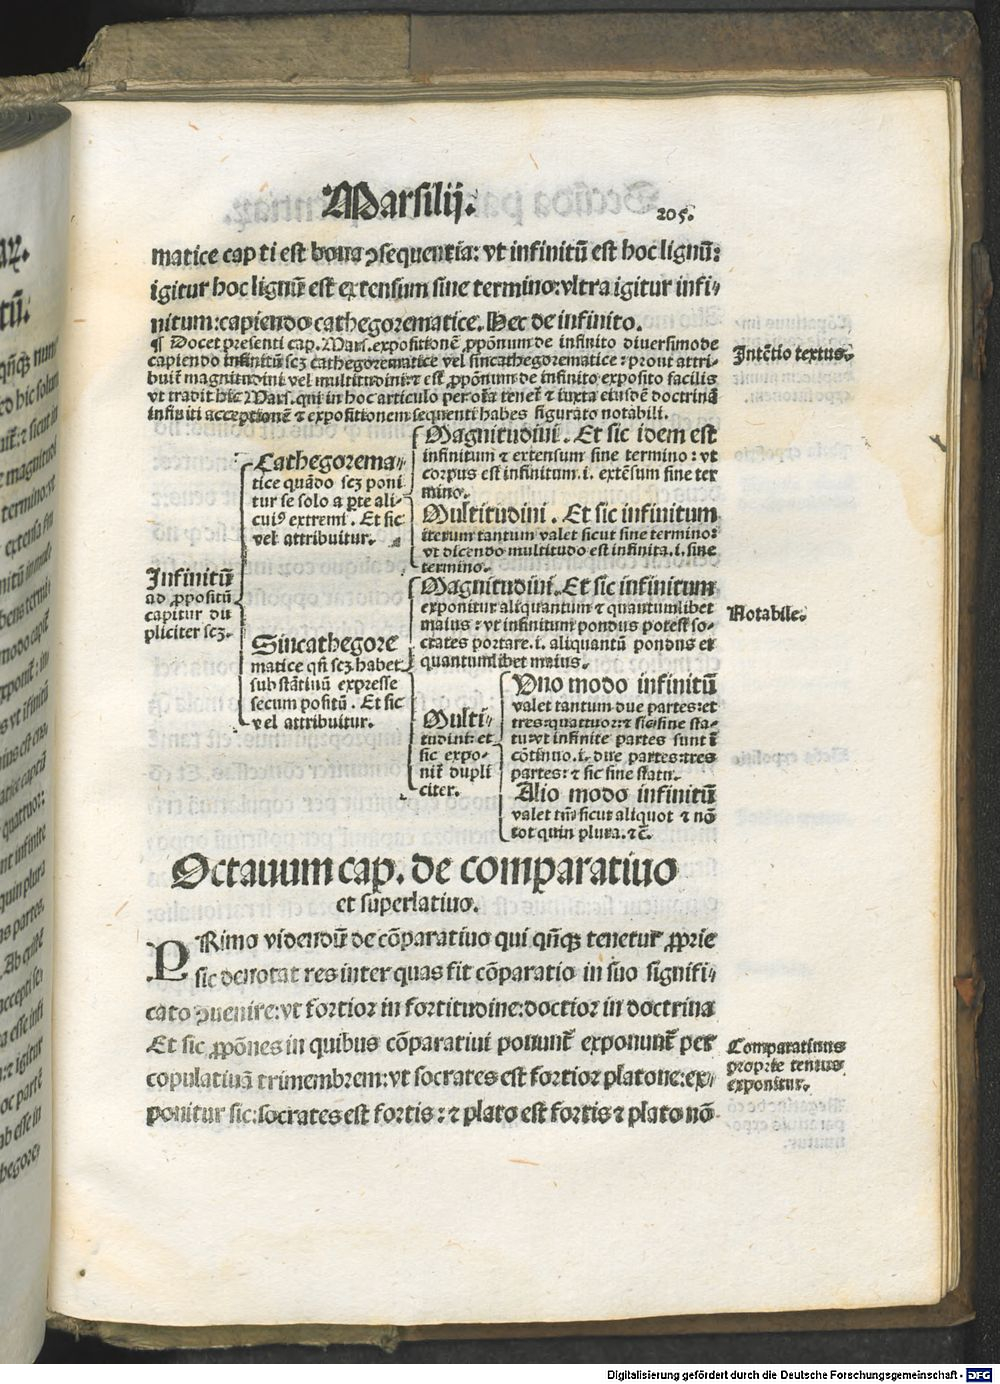 Marsilij.
205.
matice cap ti est bona ꝯsequentia: vt infinitũ est hoc lignũ:
igitur hoc lignũ est extensum sine termino: vltra igitur infi-
nitum: capiendo cathegorematice. Hec de infinito.
¶ Docet presenti cap. Mars. expositionẽ ꝓpõnum de infinito diuersimode
capiendo infinitũ scꝫ cathegorematice vel sincathegorematice: prout attri-
buit̃ magnitudini vel multitudini: ⁊ est ꝓpõnum de infinito exposito facilis
vt tradit hic Mars. qui in hoc articulo per oĩa tenet̃ ⁊ iuxta eiusdẽ doctrinã
infiniti acceptionẽ ⁊ expositionem sequenti habes figurato notabili.
Intẽtio textus.
Infinitũ
ad ꝓpositũ
capitur du
pliciter scꝫ.
Cathegorema-
tice quãdo scꝫ poni
tur se solo a ꝑte ali-
cuiꝰ extremi. Et sic
vel attribuitur.
Magnitudini. Et sic idem est
infinitum ⁊ extensum sine termino: vt
corpus est infinitum. i. extẽsum sine ter
mino.
Multitudini. Et sic infinitum
iterum tantum valet sicut sine termino:
vt dicendo multitudo est infinita. i. sine
termino.
Sincathegore
matice qñ scꝫ habet
substãtiuũ expresse
secum positũ. Et sic
vel attribuitur.
Magnitudini. Et sic infinitum
exponitur aliquantum ⁊ quantumlibet
maius: vt infinitum pondus potest so-
crates portare. i. aliquantũ pondus et
quantumlibet maius.
Multi-
tudini: et
sic expo-
nit̃ dupli
citer.
Vno modo infinitũ
valet tantum due partes: et
tres: quattuor: ⁊ sic sine sta-
tu: vt infinite partes sunt ĩ
cõtinuo. i. due partes: tres
partes: ⁊ sic sine statu.
Alio modo infinitũ
valet tm̃ sicut aliquot ⁊ nõ
tot quin plura. ⁊c̃.
Notabile.
Octauum cap. de comparatiuo
et superlatiuo.
PRimo videndũ de cõparatiuo qui qñqꝫ tenetur ꝓprie
sic denotat res inter quas fit cõparatio in suo signifi-
cato ꝯuenire: vt fortior in fortitudine: doctior in doctrina
Et sic ꝓpõnes in quibus cõparatiui ponunt̃ exponunt̃ per
copulatiuã trimembrem: vt socrates est fortior platone: ex-
ponitur sic: socrates est fortis: ⁊ plato est fortis ⁊ plato nõ
Comparatiuus
proprie tentus
exponitur.
Digitalisierung gefördert durch die Deutsche Forschungsgemeinschaft - DFG